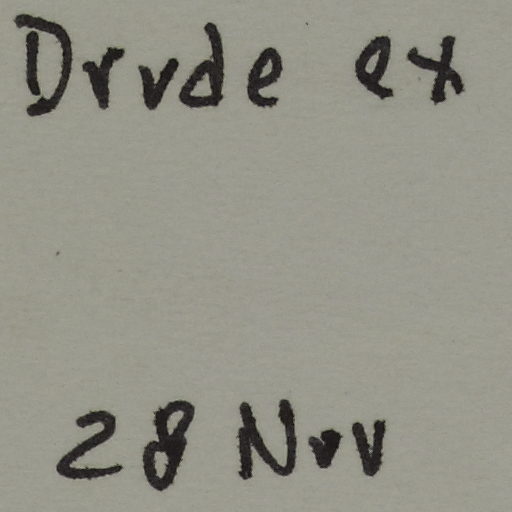 Drvde ex
28 Nov